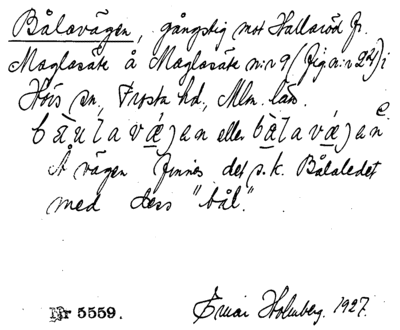 Bålavägen, gångstig mot Hallaröd fr.
Maglasäte å Maglasäte n:r 9 (fig. n:r 24) i
Hörs sn, Frosta hd, Mlm. län.
bàulavǽjan eller bàlavǽjan
Å vägen finnes det s. k. Bålaledet
med dess "bål".
Nr 5559. Einar Holmberg. 1927.